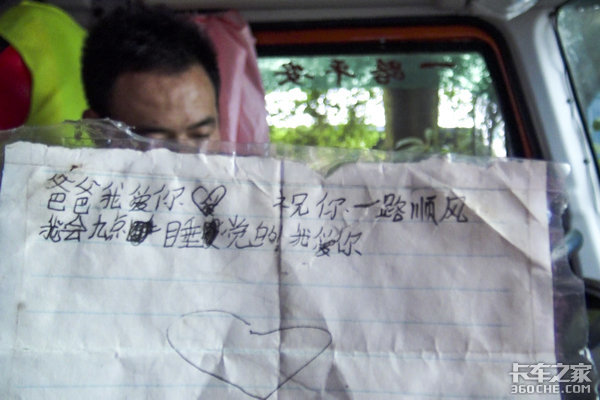 一路平安
爸爸我爱你 祝你、一路顺风
我会九点睡党的我爱你
卡车之家
360CHE.COM